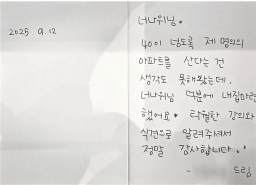 2025. 9.12
너나위님.
40이 넘도록 제 명의의
아파트를 산다는 건
생각도 못해봤는데,
너나위님 덕분에 내집마련
했어요. 탁월한 강의와
식견으로 알려주셔서
정말 감사합니다.
드림